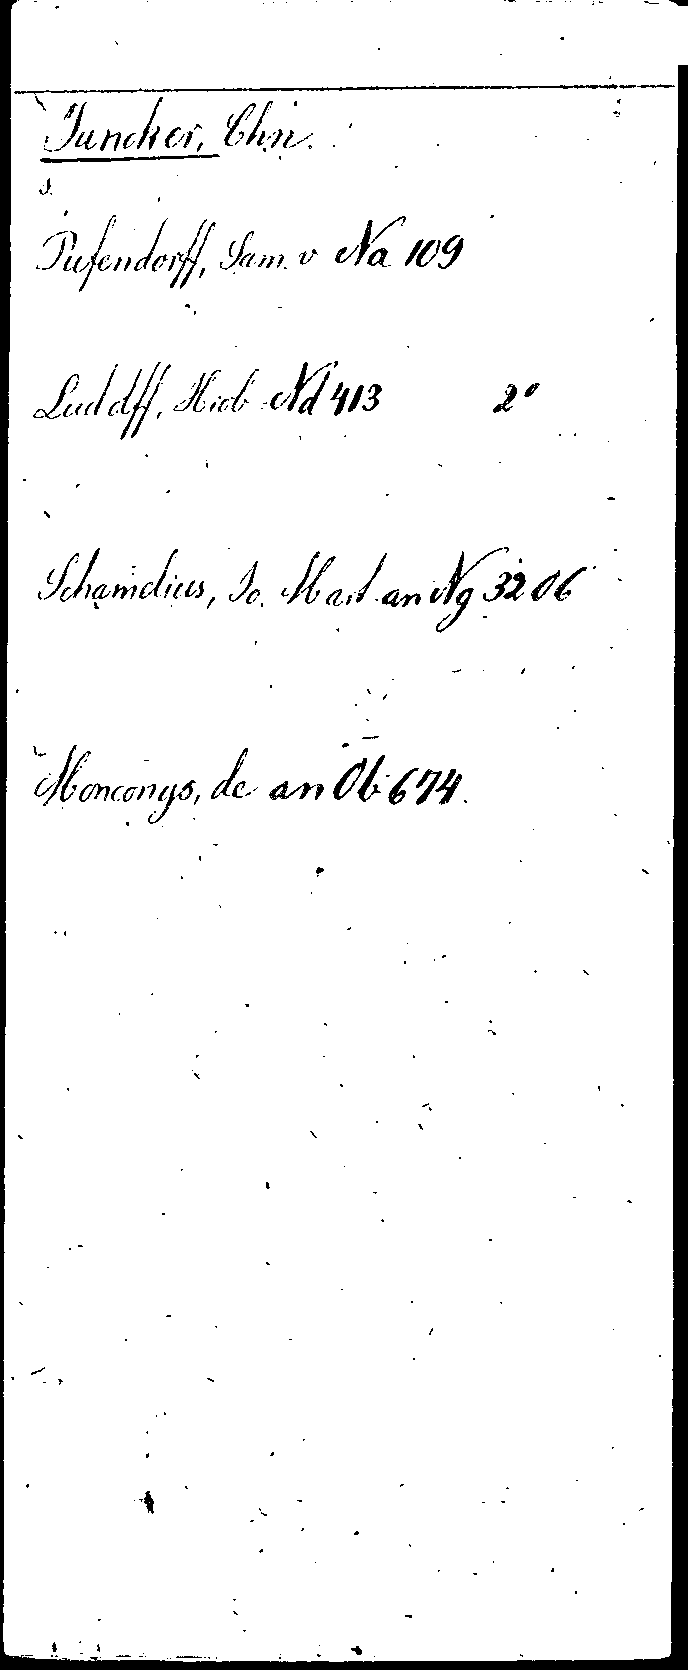 Juncker, Chn.
s.
Pufendorff, Sam. v Na 109
Ludolff, Hiob Nd 413 2°
Schamelius, Jo. Mart. an Ng 3206
Monconys, de an Ob 674.